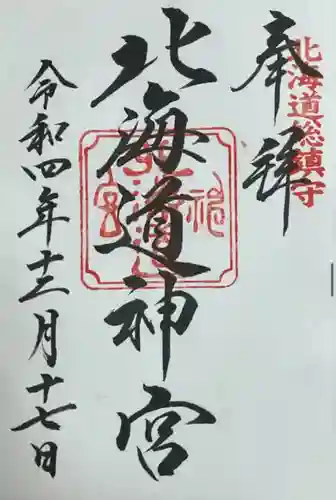 奉拝
北海道総鎮守
北海道神宮
令和四年十二月十七日